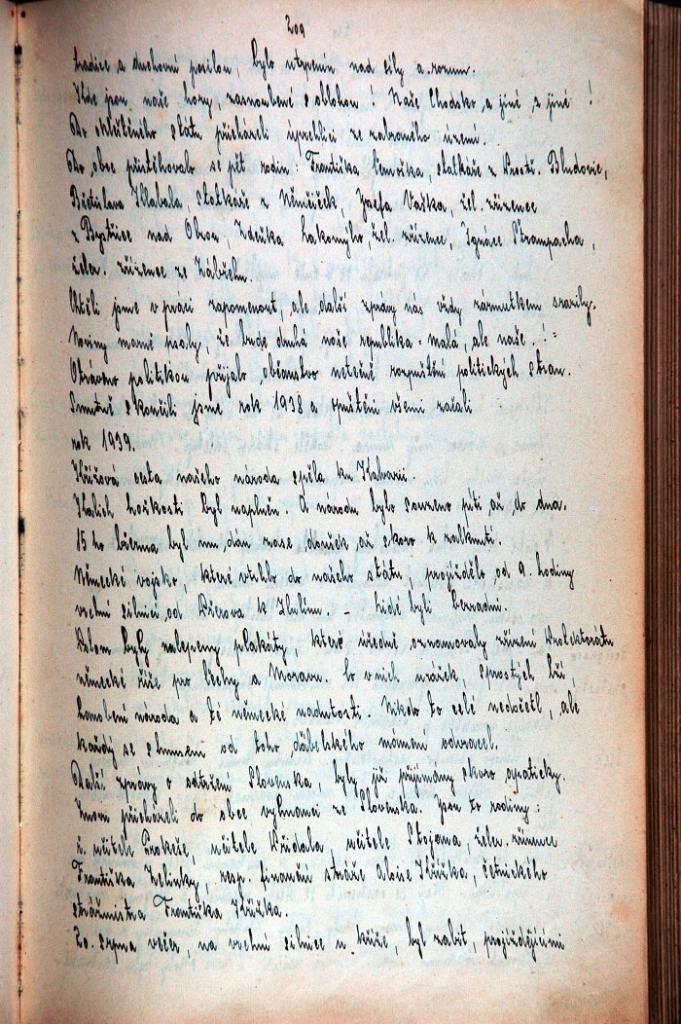 209
tradice a duchovní posilou, bylo utrpením nad síly a rozum.
Kde jsou naše hory, zasnoubené s oblohou! Naše Chodsko a jiné a jiné!
Do okleštěného státu přicházeli uprchlíci ze zabraného území.
Do obce přistěhovalo se pět rodin: Františka, rolkaře z Prostř. Bludovic,
Břetislava Sklabala, z Němčiček, Josefa Vaška, žel. zřízence
z Bystřice nad Olzou, Zdeňka Lakomého, žel. zřízence, Ignáce Štrampacha,
želez. zřízence ze Zábřehu.
Chtěli jsme v práci zapomenout, ale další zprávy nás vždy zármutkem srazily.
Noviny marně psaly, že bude druhá naše republika - malá, ale naše!
Otráveno politikou přijalo občanstvo netečně rozpuštění politických stran.
Smutně skončili jsme rok 1938 a opuštěni všemi začali
rok 1939.
Křížová cesta našeho národa spěla ku Kalvarii.
Kalich hořkosti byl naplněn. A národu bylo souzeno píti až do dna.
15 ho března byl mu dán zase doušek až skoro k zalknutí.
Německé vojsko, které vtrhlo do našeho státu, projíždělo od 9. hodiny
vrchní silnicí od Přerova k Zlínu. - Lidé byli bezradní.
Kolem byly nalepeny plakáty, které úředně oznamovaly zřízení Protektorátu
německé říše pro Čechy a Moravu. Co v nich urážek, sprostých lží,
hanobení národa a té německé nadutosti. Nikdo to celé nedočetl, ale
každý se s hnusem od toho ďábelského mámení odvracel.
Další zprávy o odtržení Slovenska, byly již přijímány skoro apaticky.
Znovu přicházeli do obce vyhnanci ze Slovenska. Jsou to rodiny:
ř. učitele Prokeše, učitele Přidala, učitele Stojana, želez. zřízence
Františka Zelinky, resp. finanční stráže Aloise Křížka, četnického
strážmistra Františka Křížka.
20. srpna večer, na vrchní silnice u kříže, byl zabit, projíždějícími